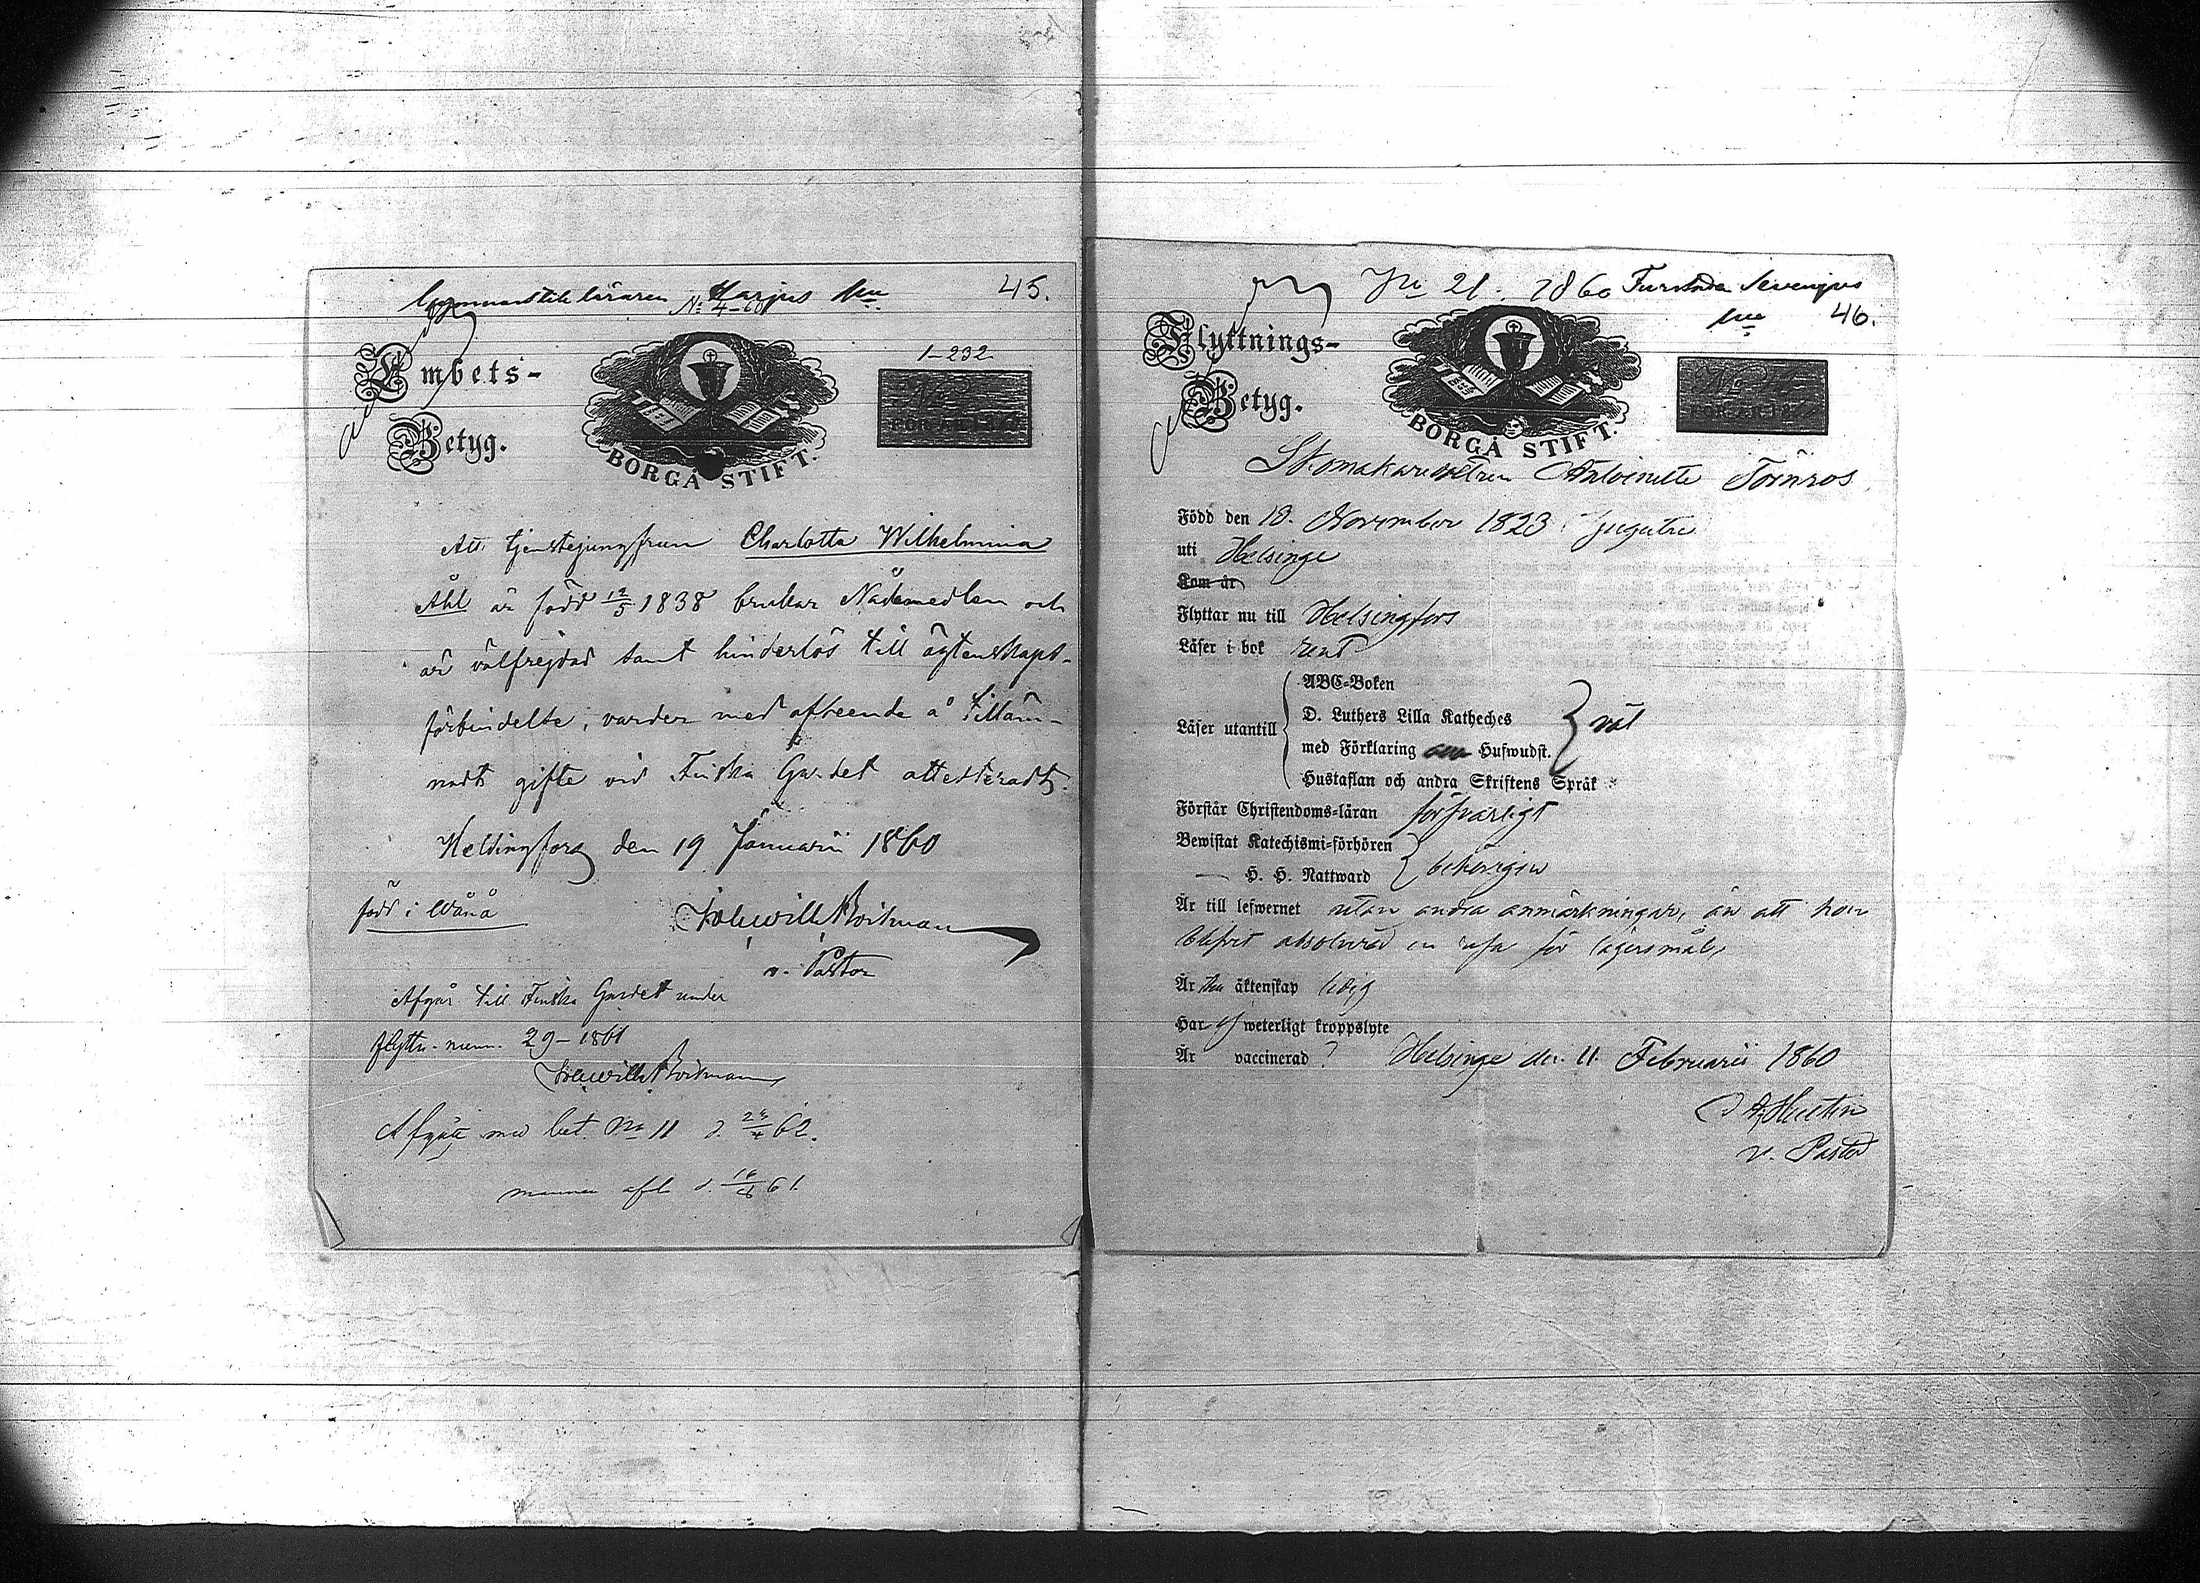 45.
1-232
Embets-
Betyg.
BORGÅ STIFT.
Att tjenstejungfrun Charlotta Wilhelmina
Åhl är född 12/5 1838 brukar Nådemedlen och
är välfrejdad samt hinderlös till ägtenskaps-
förbindelse, varder med afseende å tilläm-
nadt gifte vid Finska Gardet attesteradt.
Helsingfors den 19 Januarii 1860
född i Wånå
v. Pastor
Afgår till Finska Gardet under
flyttn. num. 29-1861
Afgått med bet. No 11 d. 62.
mannen afl. d. 61.
No 21. 1860
46.
Flyttnings-
Betyg.
BORGÅ STIFT.
Antoinette Törnros
Född den 18. November 1823
uti Helsinge
Kom år
Flyttar nu till Helsingfors
Läser i bok rent
ABC-Boken
D. Luthers Lilla Katheches
Läser utantill
med Förklaring Hufwudst.
väl
Hustaflan och andra Skriftens Språk
Förstår Christendoms-läran försvarligt
Bewistat Katechismi-förhören
H. H. Nattward
behörigen
Är till lefwernet utan andra anmärkningar, än att hon
blifvit absolverad en resa för lägersmål,
Är till äktenskap ledig
Har ej weterligt kroppslyte
Är vaccinerad ? Helsinge den 11 Februarii 1860
v. Pastor